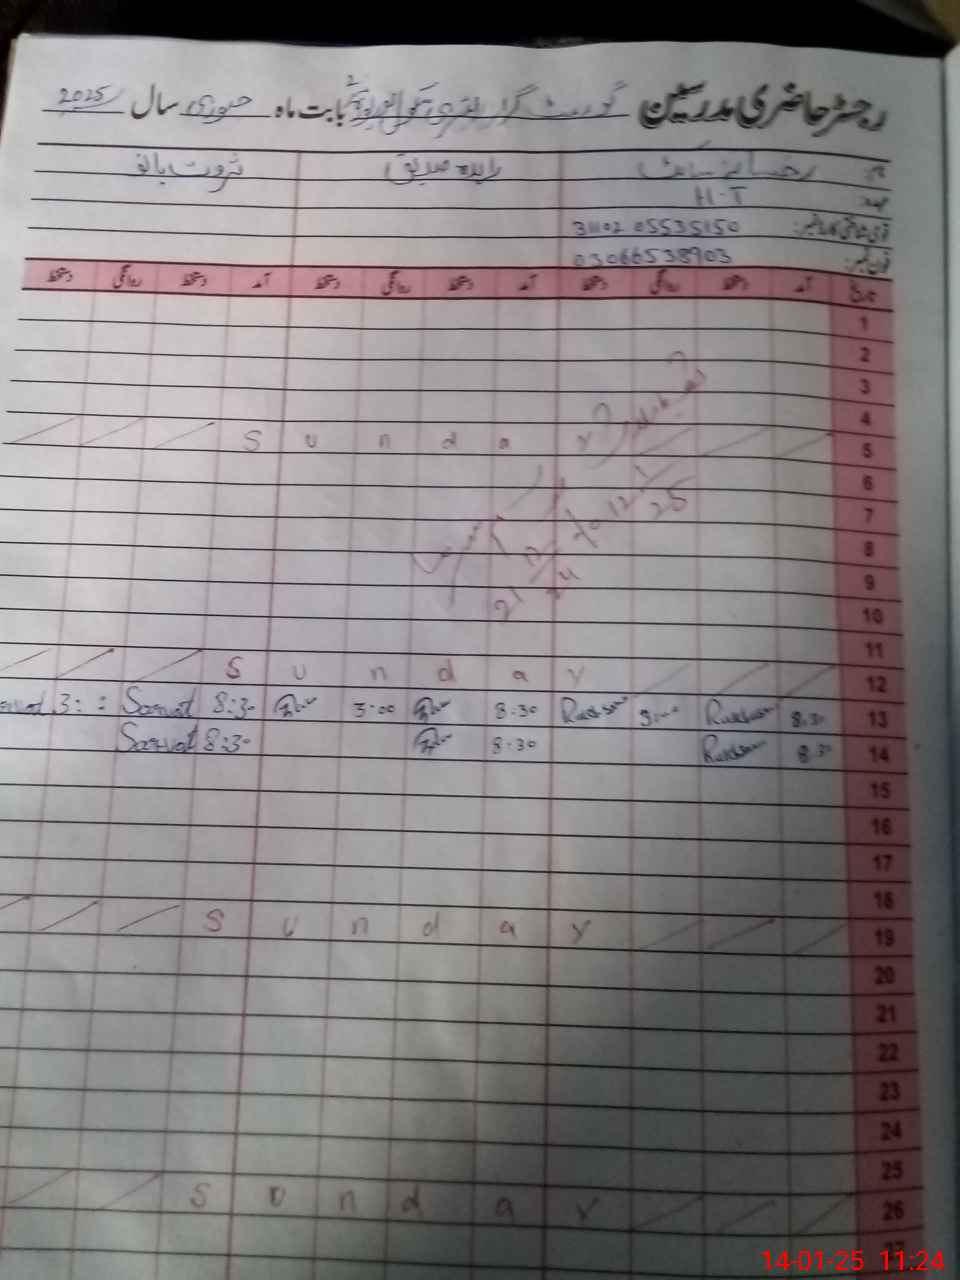 رجسٹر حاضری مدرسین گورنمنٹ گرلز پرائمری سکول بابت ماہ جنوری سال 2025
نام: زاہدہ صدیق ثروت بانو
عہدہ: H-T
قومی شناختی کارڈ نمبر: 31102 05535150
فون نمبر: 03066538903
تاریخ آمد دستخط روانگی دستخط آمد دستخط روانگی دستخط آمد دستخط روانگی دستخط
1
2
3
4
5 Sunday
6
7
8
9
10
11
21 12/24 to 12 1/25
12 Sunday
13 8:30 Rukhsana 3:00 Rukhsana 8:30 3:00 8:30 Sarwat 3:
14 8:30 Rukhsana 8:30 8:30 Sarwat
15
16
17
18
19 Sunday
20
21
22
23
24
25
26 Sunday
27
14-01-25 11:24